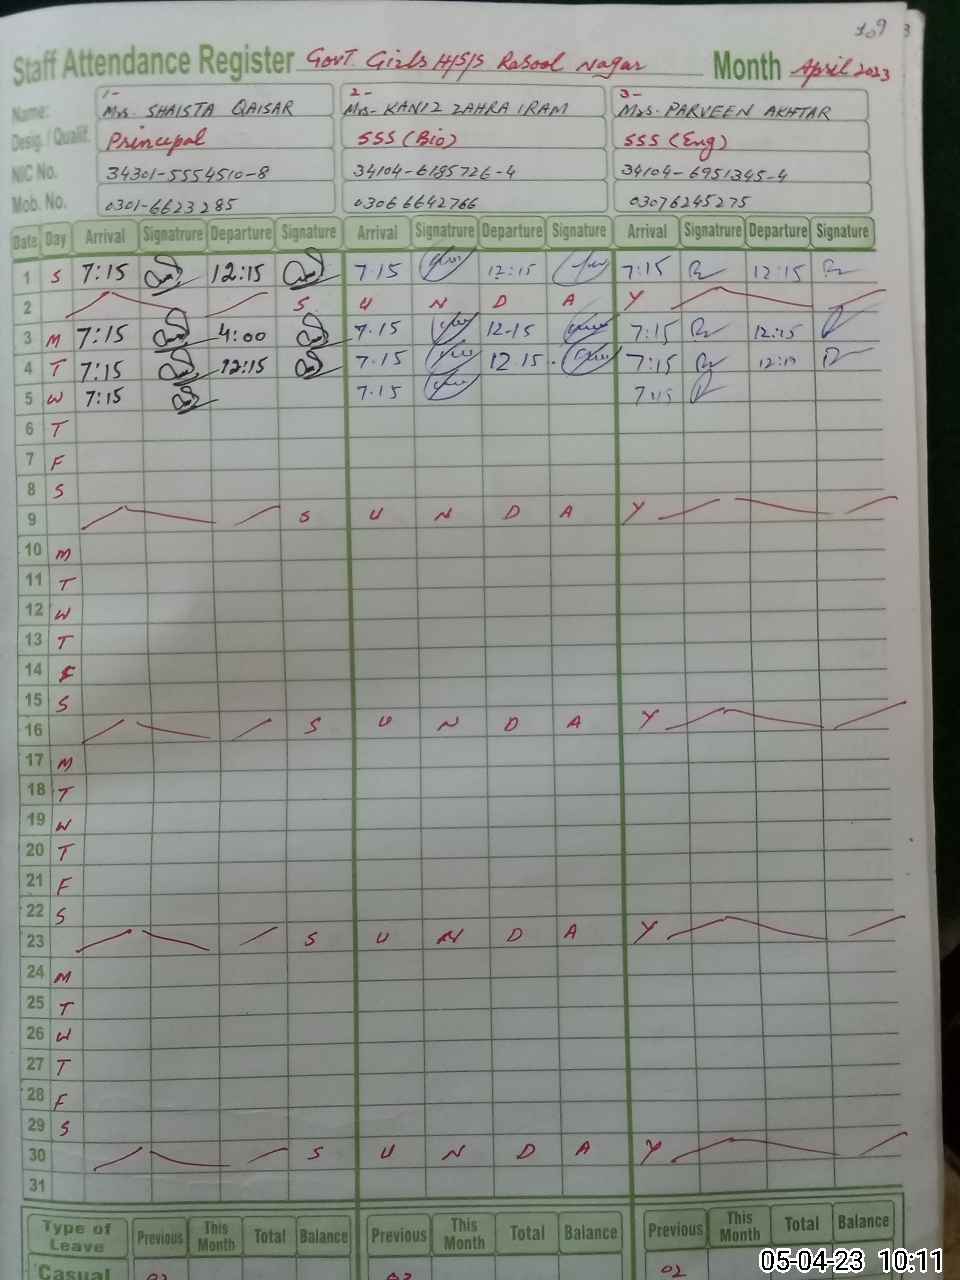 109
Staff Attendance Register Govt. Girls H/S/S Rasool Nagar Month April 2023
1- 2- 3-
Name: Mrs. SHAISTA QAISAR Mrs. KANIZ ZAHRA IRAM Mrs. PARVEEN AKHTAR
Desig. / Qualif. Principal SSS (Bio) SSS (Eng)
NIC No. 34301-5554510-8 34104-6185726-4 34104-6951345-4
Mob. No. 0301-6623285 03066642766 03076245275
Date Day Arrival Signatrure Departure Signature Arrival Signatrure Departure Signature Arrival Signatrure Departure Signature
1 S 7:15 12:15 7.15 12:15 7:15 12:15
2 S U N D A Y
3 M 7:15 4:00 7.15 12.15 7:15 12:15
4 T 7:15 12:15 7.15 12.15 7:15
5 W 7:15 7.15 7:15
6 T
7 F
8 S
9 S U N D A Y
10 M
11 T
12 W
13 T
14 F
15 S
16 S U N D A Y
17 M
18 T
19 W
20 T
21 F
22 S
23 S U N D A Y
24 M
25 T
26 W
27 T
28 F
29 S
30 S U N D A Y
31
Type of Leave Previous This Month Total Balance Previous This Month Total Balance Previous This Month Total Balance
Casual 02
05-04-23 10:11